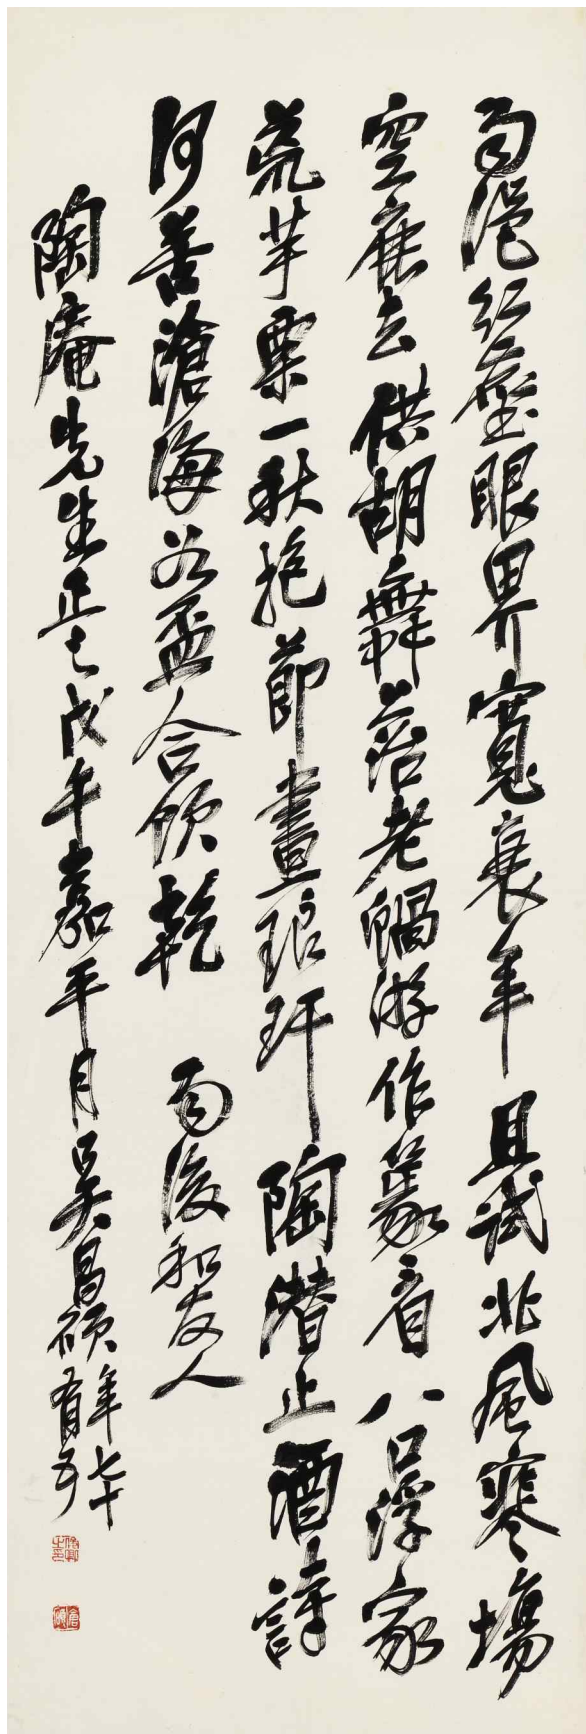 雨浥紅塵眼界寬衰年且試北風寒場
空鹿去供胡舞苔老蝸游作篆看八口浮家
荒芋栗一秋抱節畫琅玕陶潛止酒詩
何善滄海為盃合領乾 雨後和友人
陶庵先生正之戊午嘉平月吳昌碩年七十有五